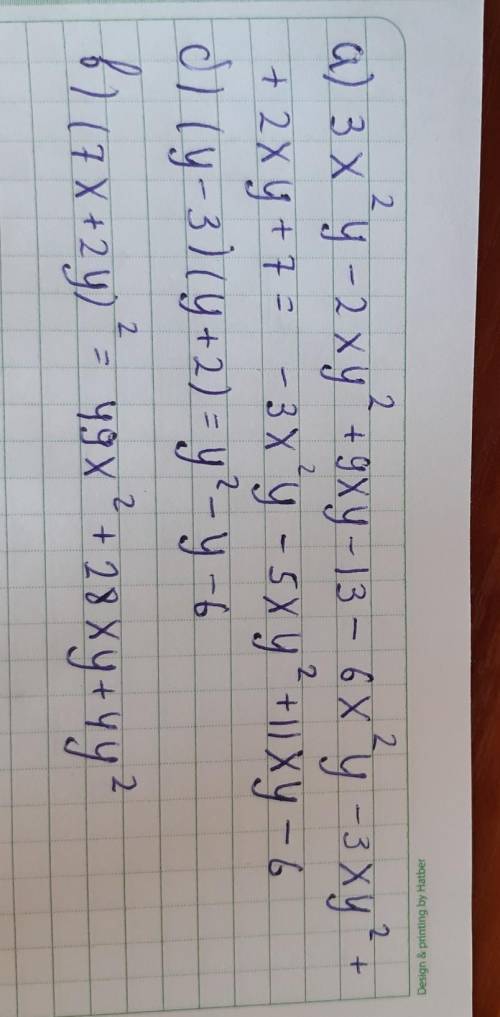 а) 3x²y - 2xy² + 9xy - 13 - 6x²y - 3xy² +
+ 2xy + 7 = - 3x²y - 5xy² + 11xy - 6
б) (y - 3)(y + 2) = y² - y - 6
в) (7x + 2y)² = 49x² + 28xy + 4y²
Design & printing by Hatber